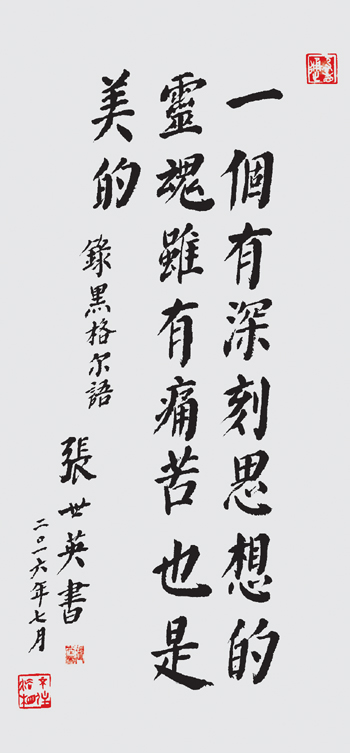 一個有深刻思想的
靈魂雖有痛苦也是
美的
錄黑格尔語
張世英書
二〇一六年七月